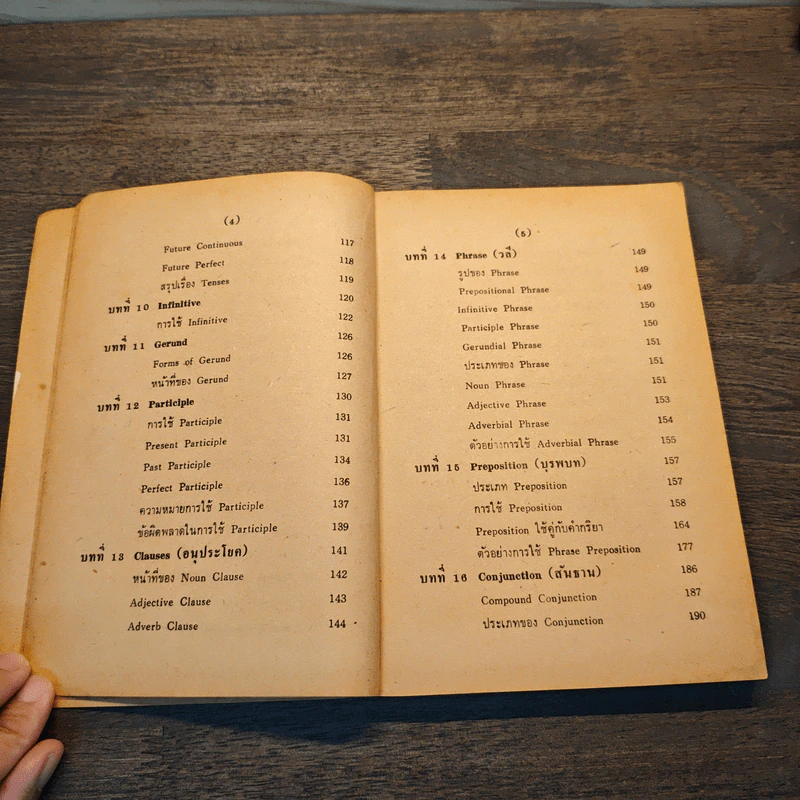 (4)
Future Continuous 117
Future Perfect 118
สรุปเรื่อง Tenses 119
บทที่ 10 Infinitive 120
การใช้ Infinitive 122
บทที่ 11 Gerund 126
Forms of Gerund 126
หน้าที่ของ Gerund 127
บทที่ 12 Participle 130
การใช้ Participle 131
Present Participle 131
Past Participle 134
Perfect Participle 136
ความหมายการใช้ Participle 137
ข้อผิดพลาดในการใช้ Participle 139
บทที่ 13 Clauses (อนุประโยค) 141
หน้าที่ของ Noun Clause 142
Adjective Clause 143
Adverb Clause 144
(5)
บทที่ 14 Phrase (วลี) 149
รูปของ Phrase 149
Prepositional Phrase 149
Infinitive Phrase 150
Participle Phrase 150
Gerundial Phrase 151
ประเภทของ Phrase 151
Noun Phrase 151
Adjective Phrase 153
Adverbial Phrase 154
ตัวอย่างการใช้ Adverbial Phrase 155
บทที่ 15 Preposition (บุรพบท) 157
ประเภท Preposition 157
การใช้ Preposition 158
Preposition ใช้คู่กับคำกริยา 164
ตัวอย่างการใช้ Phrase Preposition 177
บทที่ 16 Conjunction (สันธาน) 186
Compound Conjunction 187
ประเภทของ Conjunction 190